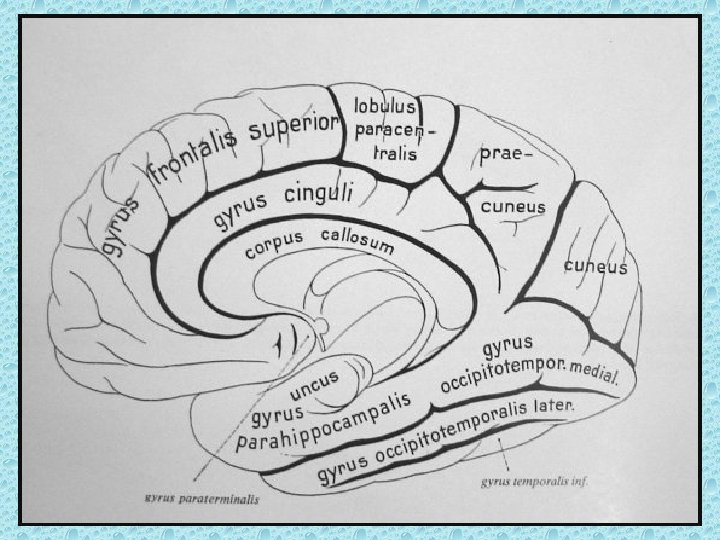 gyrus frontalis superior
lobulus
paracen-
tralis
prae-
cuneus
cuneus
gyrus cinguli
corpus callosum
gyrus
occipitotempor. medial.
uncus
gyrus
parahippocampalis
gyrus occipitotemporalis later.
gyrus temporalis inf.
gyrus paraterminalis